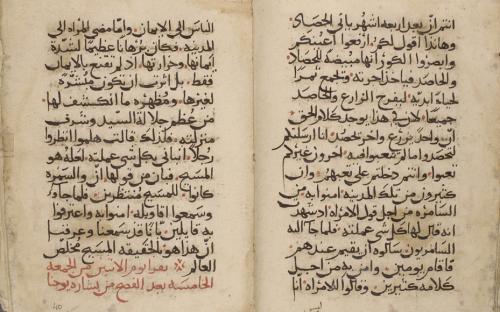 انتم ان بعد اربعه اشهر ياتى الحصاد
وهانذا اقول لكم ارفعوا اعينكم
وابصروا الكور انها مبيضه للحصاد
والحاصد فياخذ اجرته ويجمع ثمرا
لحياه ابديه ليفرح الزارع والحاصد
جميعا لان فى هذا يوجد كلام الحق
ان واحد يزرع واخر يحصد انا ارسلتكم
لتحصدوا ما لم تتعبوا فيه اخرون غيركم
تعبوا وانتم دخلتم على تعبهم وان
كثيرون من تلك المدينه امنوا به من
السامره من اجل قول الامراه اذ تشهد
انه قال لها كل شى عملته فلما جا اليه
السامريون سالوه ان يقيم عندهم
فاقام يومين وامن به من اجل
كلامه كثيرين وقالوا للامراه انا
الناس الى الايمان واما مضى المراه الى
المدينه فكان برهانا عظيما لشده
ايمانها وحرارتها اذ لم تقنع بالايمان
فقط بل اثرت ان تكون مبشره
لغيرها ومظهره ما انكشف لها
من عظم جلاله السيد وشرف
منزلته فلذلك قالت هلموا انظروا
رجلا انبانى بكل شى عملته لعله هو
المسيح فبان من قولها ان والسمره
كانوا للمسيح منتظرين فلما جاوا
وسمعوا اقاويله امنوا به واعترفوا
به قايلين باننا قد سمعنا وعرفنا
ان هذا هو بالحقيقه المسيح مخلص
العالم يقرا يوم الاثنين من الجمعه
الخامسه بعد الفصح من بشاره يوحنا
40